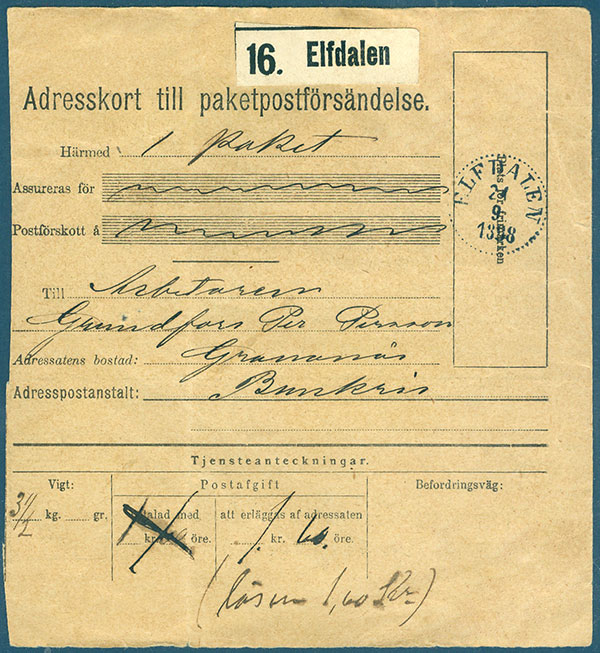 16. Elfdalen
Adresskort till paketpostförsändelse.
Härmed 1 paket
Assureras för
Postförskott å
Till Arbetaren
Grundfors Per Persson
Adressatens bostad: Granonäs
Adresspostanstalt: Bunkris
Plats för frimärken
ELFDALEN
21
9
1898
Tjensteanteckningar.
Vigt: Postafgift Befordringsväg:
3 1/2 kg. gr.
betalad med att erläggas af adressaten
kr. öre. 1. kr. 60. öre.
(lösen 1,60 Kr)